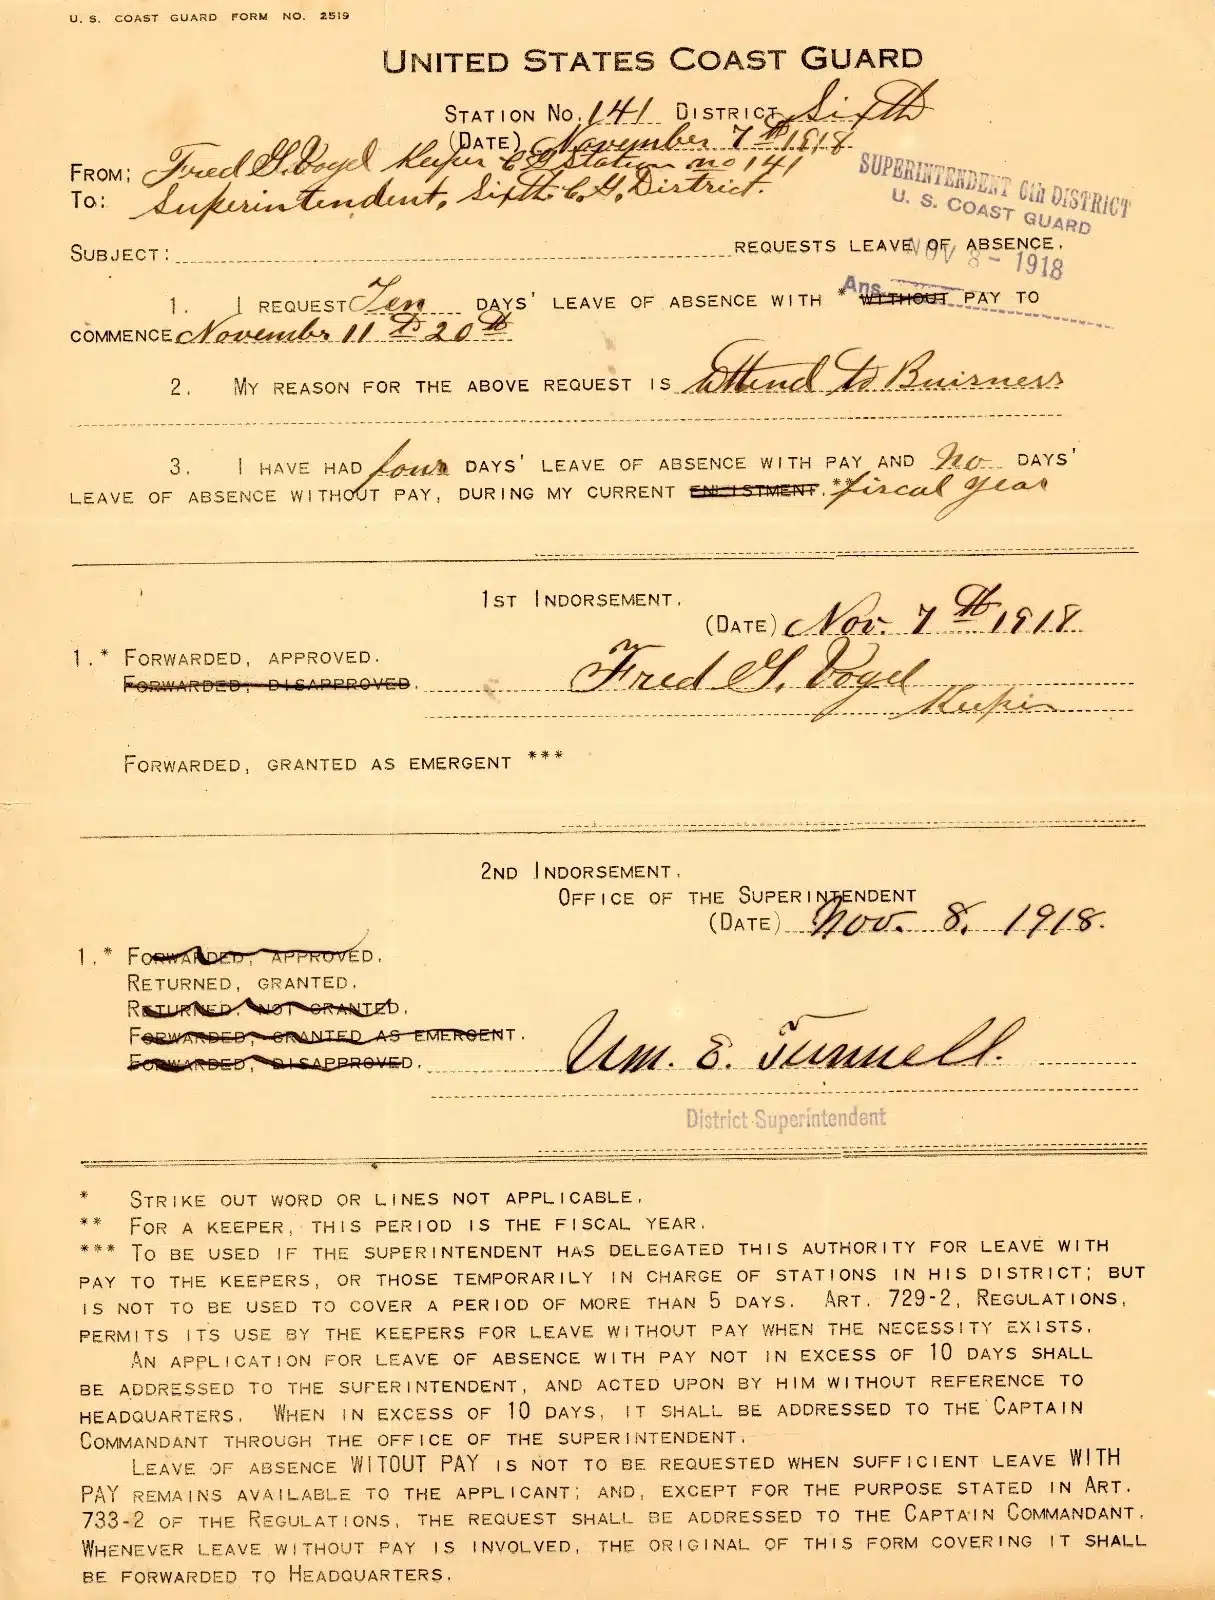 U. S. COAST GUARD FORM NO. 2519
UNITED STATES COAST GUARD
STATION NO. 141 DISTRICT Sixth
(DATE) November 7th 1918.
FROM; Fred G. Vogel Keeper C G Station no 141
TO: Superintendent, Sixth C. G. District.
SUPERINTENDENT 6th DISTRICT
U. S. COAST GUARD
NOV 8 - 1918
Ans.
SUBJECT: REQUESTS LEAVE OF ABSENCE.
1. I REQUEST Ten DAYS' LEAVE OF ABSENCE WITH * WITHOUT PAY TO
COMMENCE November 11th 20th
2. MY REASON FOR THE ABOVE REQUEST IS Attend to Buisness
3. I HAVE HAD four DAYS' LEAVE OF ABSENCE WITH PAY AND no DAYS'
LEAVE OF ABSENCE WITHOUT PAY, DURING MY CURRENT ENLISTMENT.** fiscal year
1ST INDORSEMENT.
(DATE) Nov. 7th 1918
1.* FORWARDED, APPROVED.
FORWARDED, DISAPPROVED.
Fred G. Vogel
Keeper
FORWARDED, GRANTED AS EMERGENT ***
2ND INDORSEMENT.
OFFICE OF THE SUPERINTENDENT
(DATE) Nov. 8, 1918.
1.* FORWARDED, APPROVED.
RETURNED, GRANTED.
RETURNED, NOT GRANTED.
FORWARDED, GRANTED AS EMERGENT.
FORWARDED, DISAPPROVED.
Wm. E. Tunnell.
District Superintendent
* STRIKE OUT WORD OR LINES NOT APPLICABLE.
** FOR A KEEPER, THIS PERIOD IS THE FISCAL YEAR.
*** TO BE USED IF THE SUPERINTENDENT HAS DELEGATED THIS AUTHORITY FOR LEAVE WITH
PAY TO THE KEEPERS, OR THOSE TEMPORARILY IN CHARGE OF STATIONS IN HIS DISTRICT; BUT
IS NOT TO BE USED TO COVER A PERIOD OF MORE THAN 5 DAYS. ART. 729-2, REGULATIONS,
PERMITS ITS USE BY THE KEEPERS FOR LEAVE WITHOUT PAY WHEN THE NECESSITY EXISTS.
AN APPLICATION FOR LEAVE OF ABSENCE WITH PAY NOT IN EXCESS OF 10 DAYS SHALL
BE ADDRESSED TO THE SUPERINTENDENT, AND ACTED UPON BY HIM WITHOUT REFERENCE TO
HEADQUARTERS. WHEN IN EXCESS OF 10 DAYS, IT SHALL BE ADDRESSED TO THE CAPTAIN
COMMANDANT THROUGH THE OFFICE OF THE SUPERINTENDENT.
LEAVE OF ABSENCE WITOUT PAY IS NOT TO BE REQUESTED WHEN SUFFICIENT LEAVE WITH
PAY REMAINS AVAILABLE TO THE APPLICANT; AND, EXCEPT FOR THE PURPOSE STATED IN ART.
733-2 OF THE REGULATIONS, THE REQUEST SHALL BE ADDRESSED TO THE CAPTAIN COMMANDANT.
WHENEVER LEAVE WITHOUT PAY IS INVOLVED, THE ORIGINAL OF THIS FORM COVERING IT SHALL
BE FORWARDED TO HEADQUARTERS.